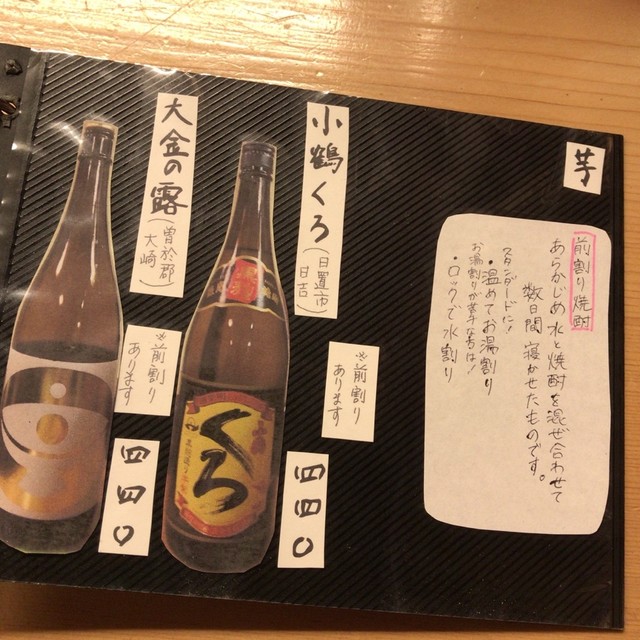 芋
前割り焼酎
あらかじめ水と焼酎を混ぜ合わせて
数日間寝かせたものです。
スタンダードに!
・温めてお湯割り
お湯割りが苦手な方は!
・ロックで水割り
小鶴くろ
(日置市
日吉)
※前割り
あります
四四〇
くろ
大金の露
(曽於郡
大崎)
※前割り
あります
四四〇